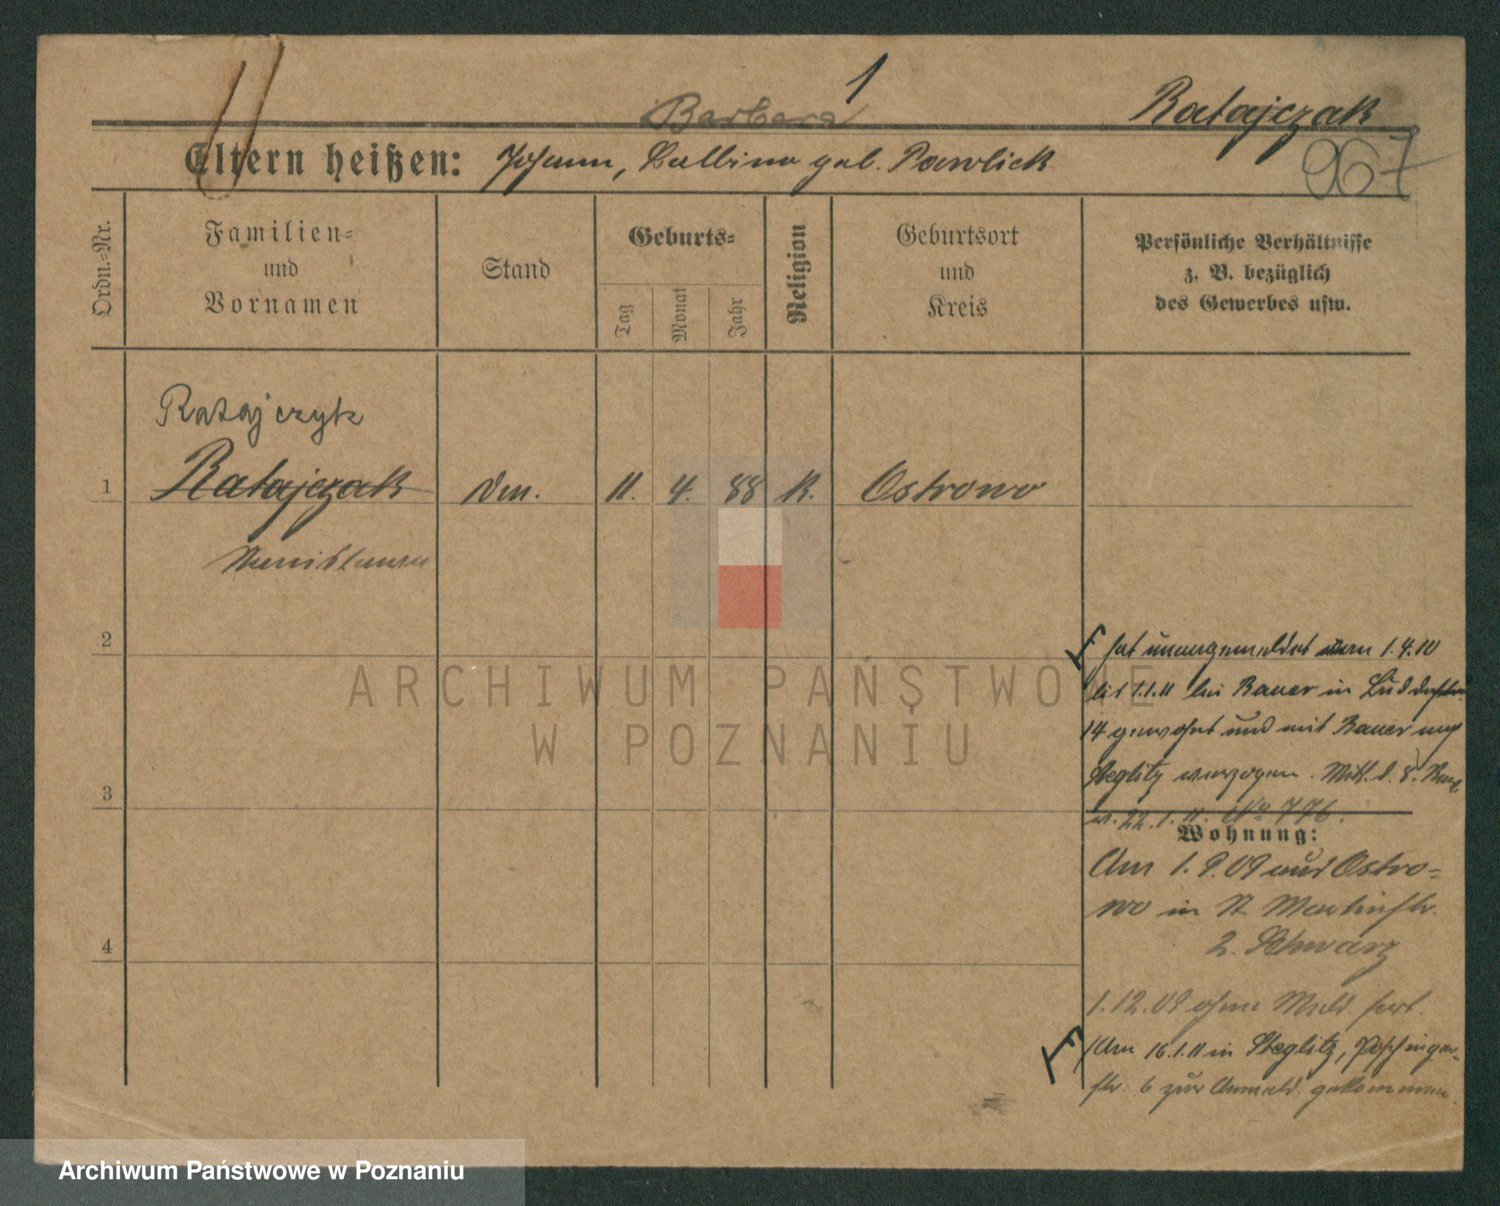 1
Barbara
Ratajczak
967
Eltern heißen: Johann, Balbina geb. Pawlick
Ordn.-Nr.
Familien-
und
Vornamen
Stand
Geburts-
Tag
Monat
Jahr
Religion
Geburtsort
und
Kreis
Persönliche Verhältnisse
z. B. bezüglich
des Gewerbes usw.
Ratajczyk
1 Ratajczak 11. 4. 88 K. Ostrowo
2
3
4
hat unangemeldet vom 1.4.10
bis 1.1.11 bei Bauer in
14 gewohnt und mit Bauer nach
Steglitz verzogen. Mitt. d.
v. 22.1.11. No 776.
Wohnung:
Am 1.9.09 aus Ostro-
wo in St Martinstr.
2. Schwarz
1.12.09 ohne Meld. fort.
Am 16.1.11 in Steglitz,
str. 6 zur Anmeld. gekommen.
ARCHIWUM PAŃSTWOWE
W POZNANIU
Archiwum Państwowe w Poznaniu